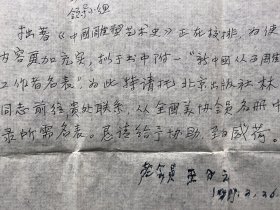 领导小组
拙著《中国雕塑艺术史》正在校排，为使
内容更加充实，拟于书中附一"新中国从事雕塑
工作者名表"，为此特请托北京出版社林
同志前往贵处联系，从全国美协会员名册中
录所需名表。恳请给予协助，至感荷。
老会员 王子云
2.26